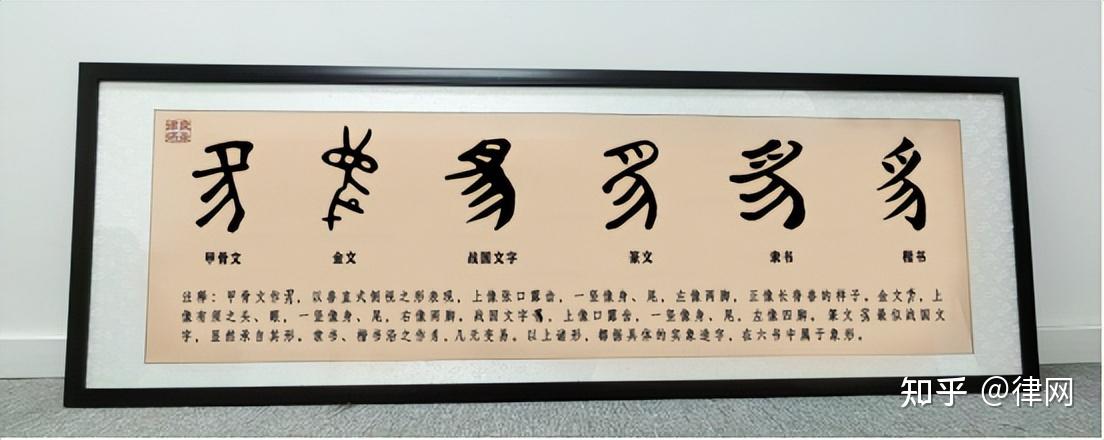 甲骨文 金文 战国文字 篆文 隶书 楷书
注释：甲骨文作豸，以兽直式侧视之形表现，上像张口露齿，一竖像身、尾，左像两脚，正像长脊兽的样子。金文豸，上
像有须之头、眼，一竖像身、尾，右像两脚。战国文字豸，上像口露齿，一竖像身、尾，左像四脚。篆文豸最似战国文
字，显然承自其形。隶书、楷书沿之作豸，几无变易。以上诸形，都据具体的实象造字，在六书中属于象形。
知乎 @律网